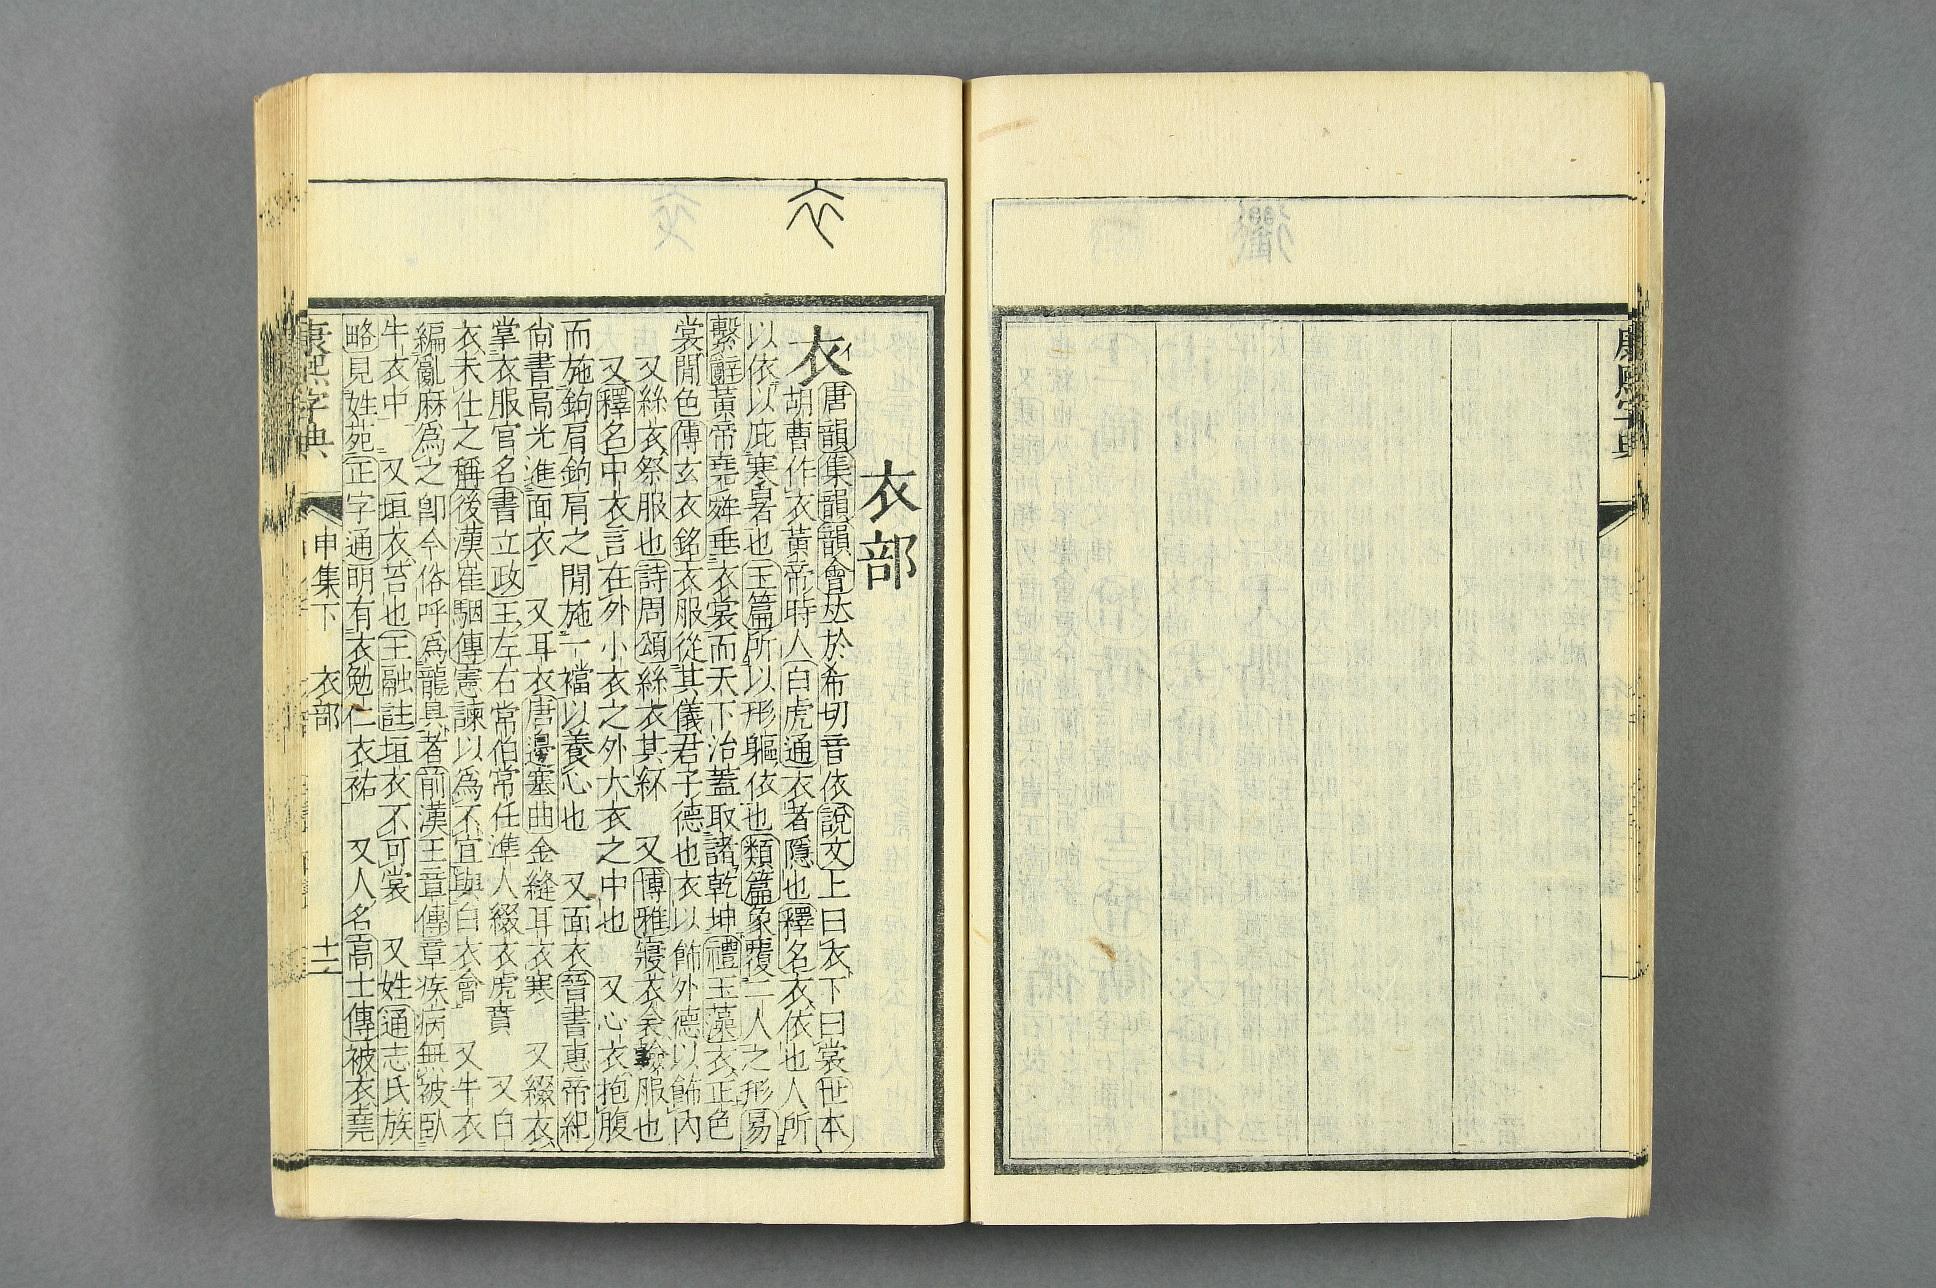 康熙字典
衣部
衣
唐韻集韻韻會𠀤於希切音依說文上曰衣下曰裳世本
胡曹作衣黃帝時人白虎通衣者隱也釋名衣依也人所
以依以庇寒暑也玉篇所以形軀依也類篇象覆二人之形易
繫辭黃帝堯舜垂衣裳而天下治蓋取諸乾坤禮玉藻衣正色
裳閒色傳玄衣銘衣服從其儀君子德也衣以飾外德以飾內
又絲衣祭服也詩周頌絲衣其紑 又博雅寢衣衾 服也
又釋名中衣言在外小衣之外大衣之中也 又心衣抱腹
而施鉤肩鉤肩之閒施一襠以養心也 又面衣晉書惠帝紀
尙書高光進面衣 又耳衣唐邊塞曲金縫耳衣寒 又綴衣
掌衣服官名書立政王左右常伯常任準人綴衣虎賁 又白
衣未仕之稱後漢崔駰傳憲諫以爲不宜與白衣會 又牛衣
編亂麻爲之卽今俗呼爲龍具者前漢王章傳章疾病無被臥
牛衣中 又垣衣苔也王融註垣衣不可裳 又姓通志氏族
略見姓苑正字通明有衣勉仁衣祐 又人名高士傳被衣堯
康熙字典
申集下 衣部
十二